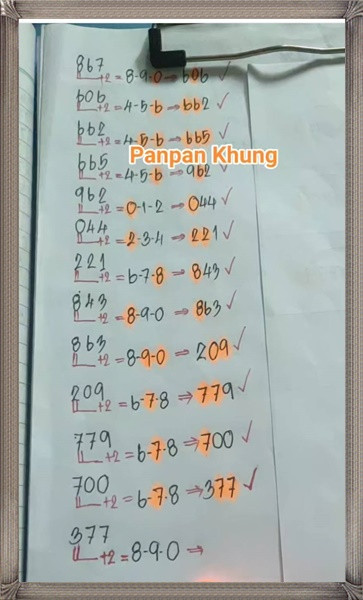 867
+2 = 8-9-0 ⇒ 606 ✓
606
+2 = 4-5-6 ⇒ 662 ✓
662
+2 = 4-5-6 ⇒ 665 ✓
Panpan Khung
665
+2 = 4-5-6 ⇒ 962 ✓
962
+2 = 0-1-2 ⇒ 044 ✓
044
+2 = 2-3-4 ⇒ 221 ✓
221
+2 = 6-7-8 ⇒ 843 ✓
843
+2 = 8-9-0 ⇒ 863 ✓
863
+2 = 8-9-0 ⇒ 209 ✓
209
+2 = 6-7-8 ⇒ 779 ✓
779
+2 = 6-7-8 ⇒ 700 ✓
700
+2 = 6-7-8 ⇒ 377 ✓
377
+2 = 8-9-0 ⇒